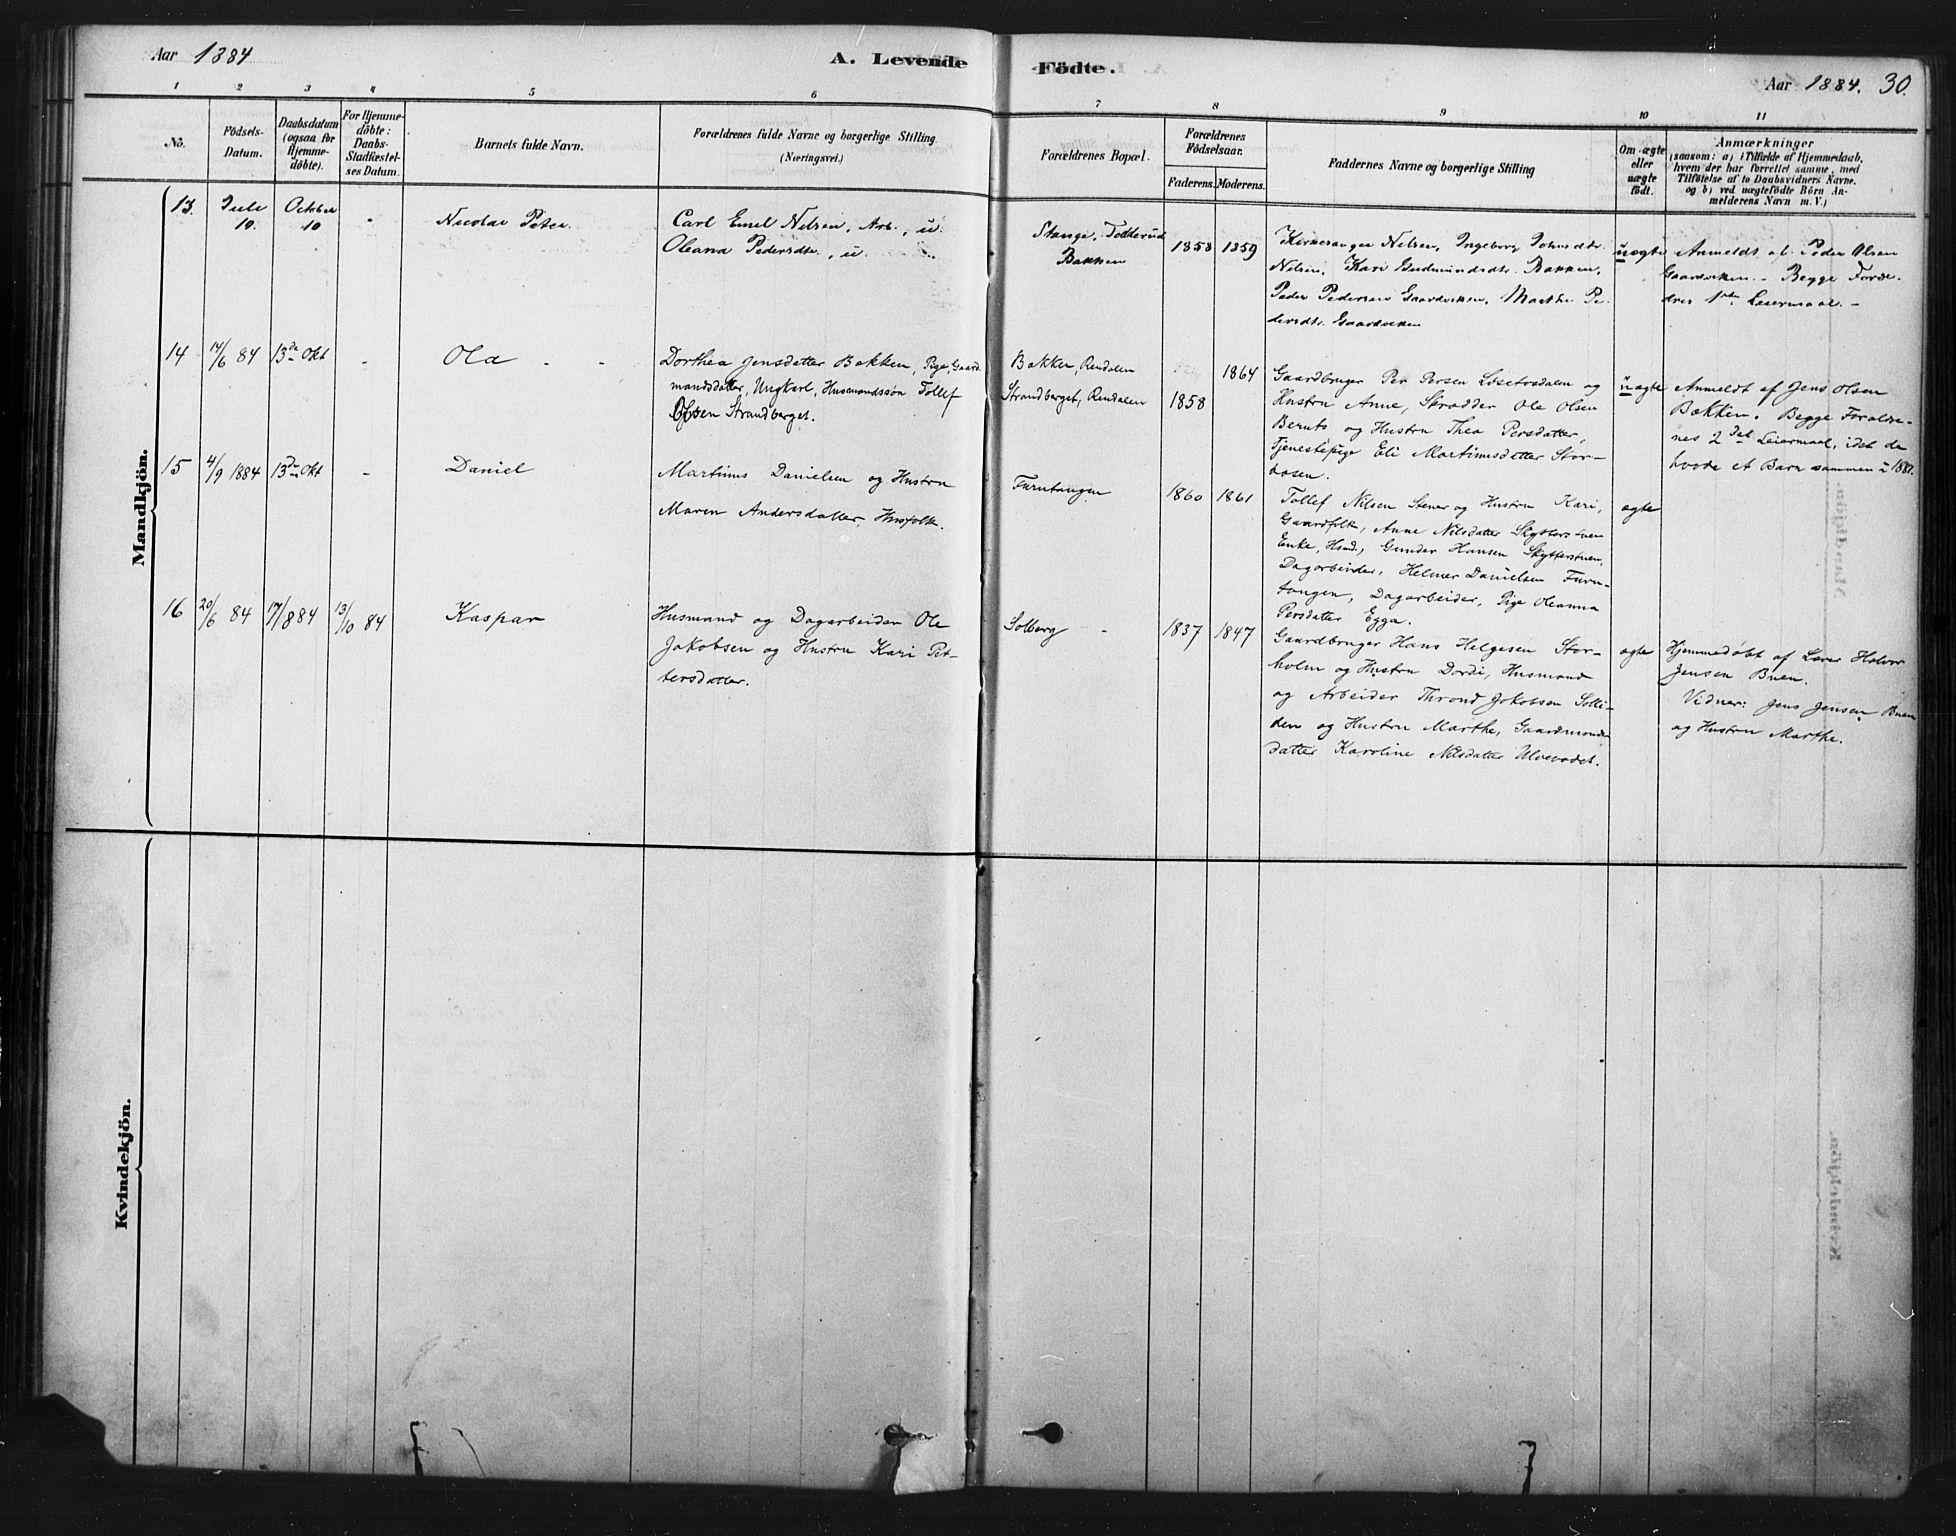 Aar 1884
A. Levende Födte.
Aar 1884. 30.
1 2 3 4 5 6 7 8 9 10 11
No.
Födsels-
Datum.
Daabsdatum
(ogsaa for
Hjemme-
döbte).
For Hjemme-
döbte:
Daabs-
Stadfæstel-
ses Datum.
Barnets fulde Navn.
Forældrenes fulde Navne og borgerlige Stilling
(Næringsvei.)
Forældrenes Bopæl.
Forældrenes
Födselsaar.
Faderens. Moderens.
Faddernes Navne og borgerlige Stilling
Om ægte
eller
uægte
födt.
Anmærkninger
(saasom: a) i Tilfælde af Hjemmedaab,
hvem der har forrettet samme, med
Tilföielse af to Daabsvidners Navne,
og b) ved uægtefödte Börn An-
melderens Navn m. V.)
Mandkjön.
13.
Juli
10.
October
10
-
Nicolai Peter.
Carl Emil Nilsen, Arb., u.
Oleana Pedersdtr., u.
Stange, Todderud
Bakken
1858 1859
Kirkesanger Nilsen, Ingeborg Johnsdtr.
Nilsen, Kari Gudmundsdtr. Bakken,
Peder Pedersen Gaardviken, Marthe Pe-
dersdtr. Gaardviken
uægte
Anmeldt af Peder Olsen
Gaardviken. - Begge Foræl-
dres 1ste Leiermaal. -
14
14/6 84
13de Okt
-
Ola
Dorthea Jensdatter Bakken, Pige, Gaard-
mandsdatter, Ungkarl, Husmandssøn Tollef
Olsen Strandberget.
Bakken, Rendalen
Strandberget, Rendalen
1864
1858
Gaardbruger Per Persen Løsetosdalen og
Hustru Anne, Skrædder Ole Olsen
Bernts og Hustru Thea Persdatter,
Tjenestepige Eli Martinusdatter Stor-
mosen.
uægte
Anmeldt af Jens Olsen
Bakken. Begge Forældre-
nes 2det Leiermaal, idet de
havde et Barn sammen i 188.
15
4/9 1884
13de Okt
-
Daniel
Martinus Danielsen og Hustru
Maren Andersdatter, Husfolk.
Furutangen
1860 1861
Tollef Nilsen Stener og Hustru Kari,
Gaardfolk, Anne Nilsdatter Skytterstuen
Enke, Hsmd., Gunder Hansen Skytterstuen,
Dagarbeider, Helmer Danielsen Furu-
tangen, Dagarbeider, Pige Oleanna
Persdatter Egga.
ægte
16
20/6 84
17/8 84
13/10 84
Kaspar
Husmand og Dagarbeider Ole
Jakobsen og Hustru Kari Pet-
tersdatter.
Solberg
1837 1847
Gaardbruger Hans Helgesen Stor-
holm og Hustru Dordi, Husmand
og Arbeider Thrond Jakobsen Solli-
den og Hustru Marthe, Gaardmands-
datter Karoline Nilsdatter Ulvevadet.
ægte
Hjemmedøbt af Lærer Halvor
Jensen Buen.
Vidner: Jens Jensen Buen
og Hustru Marthe.
Kvindekjön.